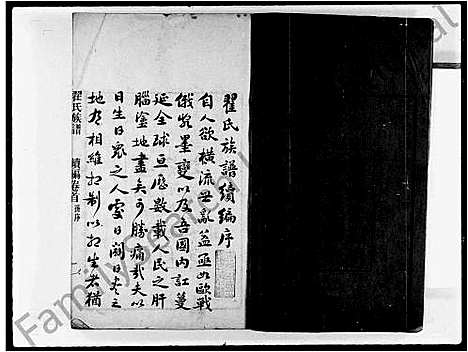 翟氏族譜續編序
自人欲橫流世亂益亟如歐戰
俄党墨變以及吾國內訌蔓
延全球亘歷數載人民之肝
腦塗地盡矣可勝痛哉夫以
日生日衆之人處日闢日老之
地有相維相制以相生者猶
翟氏族譜 續編卷首 孫序